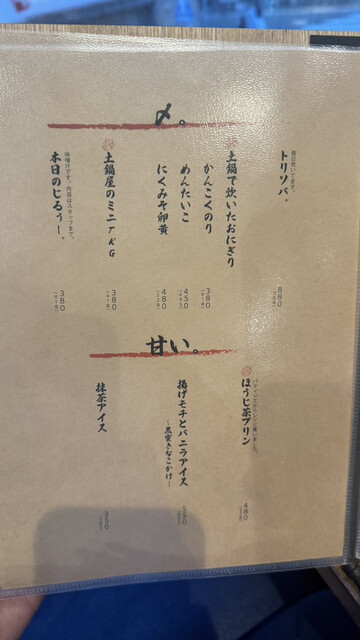 〆。
トリソバ。
880
土鍋で炊いたおにぎり
かんこくのり
380
めんたいこ
450
にくみそ卵黄
480
土鍋屋のミニTKG
380
味噌汁です。内容はスタッフまで。
本日のじるぅー。
380
甘い。
ほうじ茶プリン
480
揚げモチとバニラアイス
～黒蜜きなこかけ～
抹茶アイス
350